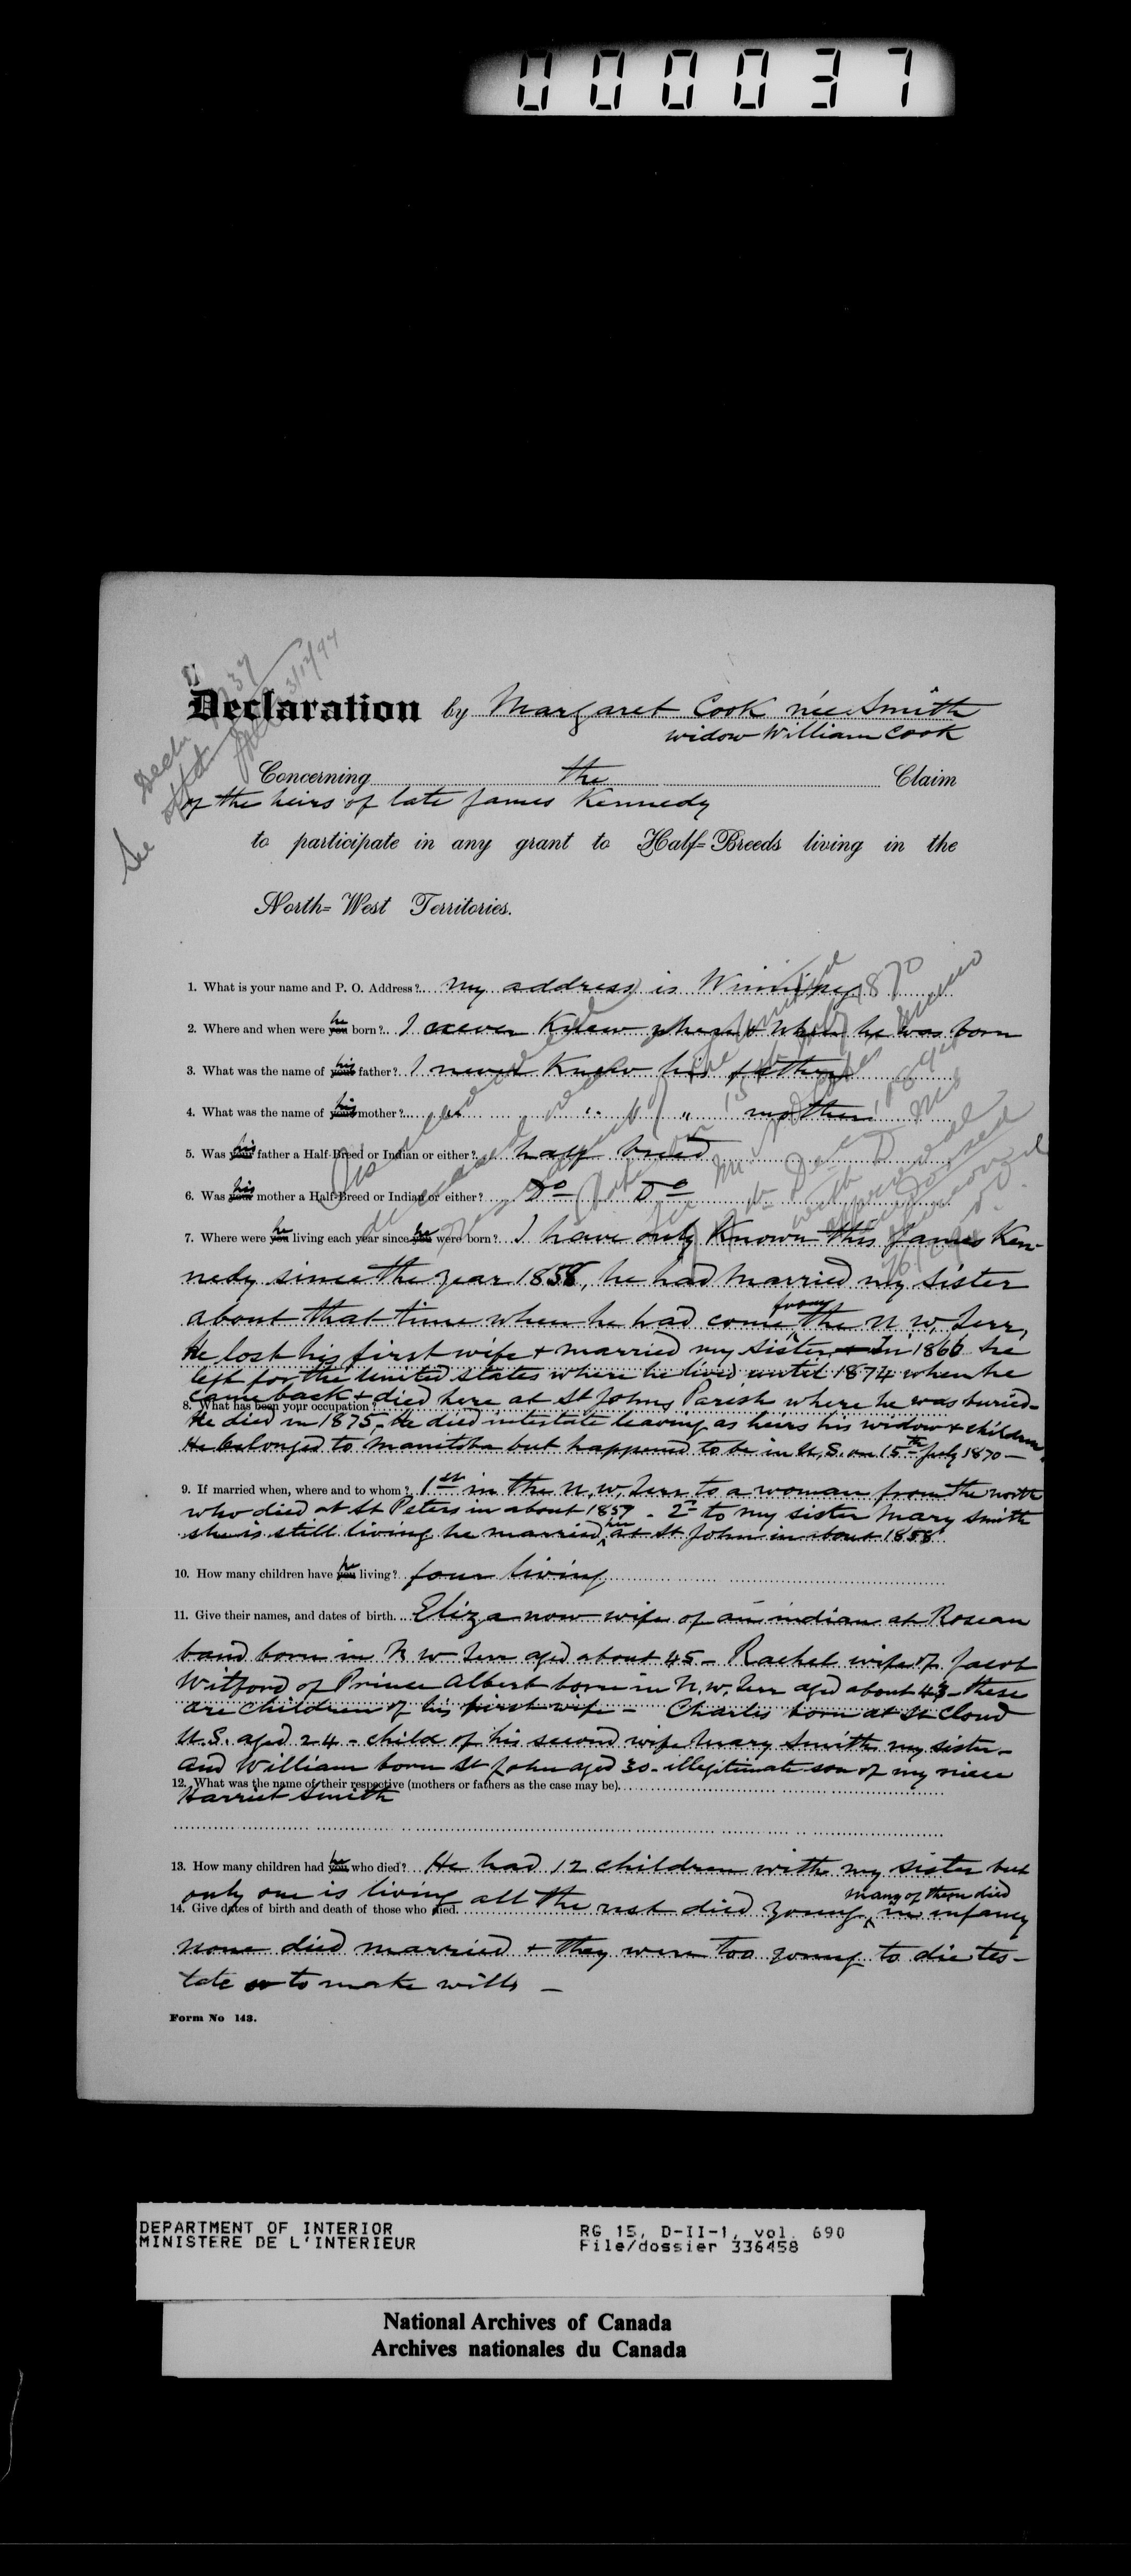 000037
Declaration by Margaret Cook née Smith
widow William Cook
Concerning the Claim
of the heirs of late James Kennedy
to participate in any grant to Half-Breeds living in the
North-West Territories.
1. What is your name and P. O. Address? My address is Winnipeg
2. Where and when were you he born? I never knew where & when he was born
3. What was the name of your his father? I never knew his father
4. What was the name of your his mother? " " " mother
5. Was your his father a Half-Breed or Indian or either? half breed
6. Was your his mother a Half-Breed or Indian or either? Do Do
7. Where were you he living each year since you he were born? I have only known this James Ken-
nedy since the year 1858, he had married my sister
about that time when he had come from the N. W. Terr,
He lost his first wife & married my sister & In 1866 he
left for the United States where he lived until 1874 when he
came back & died here at St Johns Parish where he was buried-
8. What has been your occupation?
He died in 1875, He died intestate leaving as heirs his widow & children.
He belonged to Manitoba but happened to be in U.S. on 15th July 1870 -
9. If married when, where and to whom? 1st in the N. W. Terr to a woman from the north
who died at St Peters in about 1857 - 2d to my sister Mary Smith
she is still living he married her at St John in about 1858
10. How many children have you he living? four living
11. Give their names, and dates of birth. Eliza now wife of an indian at Roseau
band born in N W Terr aged about 45 - Rachel wife of Jacob
Witford of Prince Albert born in N. W. Terr aged about 43 - these
are children of his first wife - Charles born at St Cloud
U.S. aged 24 - child of his second wife Mary Smith my sister -
and William born St John aged 30 - illegitimate son of my niece
12. What was the name of their respective (mothers or fathers as the case may be).
Harriet Smith
13. How many children had you he who died? He had 12 children with my sister but
only one is living all the rest died young, many of them died in infancy
14. Give dates of birth and death of those who died.
none died married & they were too young to die tes-
tate or to make wills -
Form No 143.
DEPARTMENT OF INTERIOR
MINISTERE DE L'INTERIEUR
RG 15, D-II-1, vol. 690
File/dossier 336458
National Archives of Canada
Archives nationales du Canada